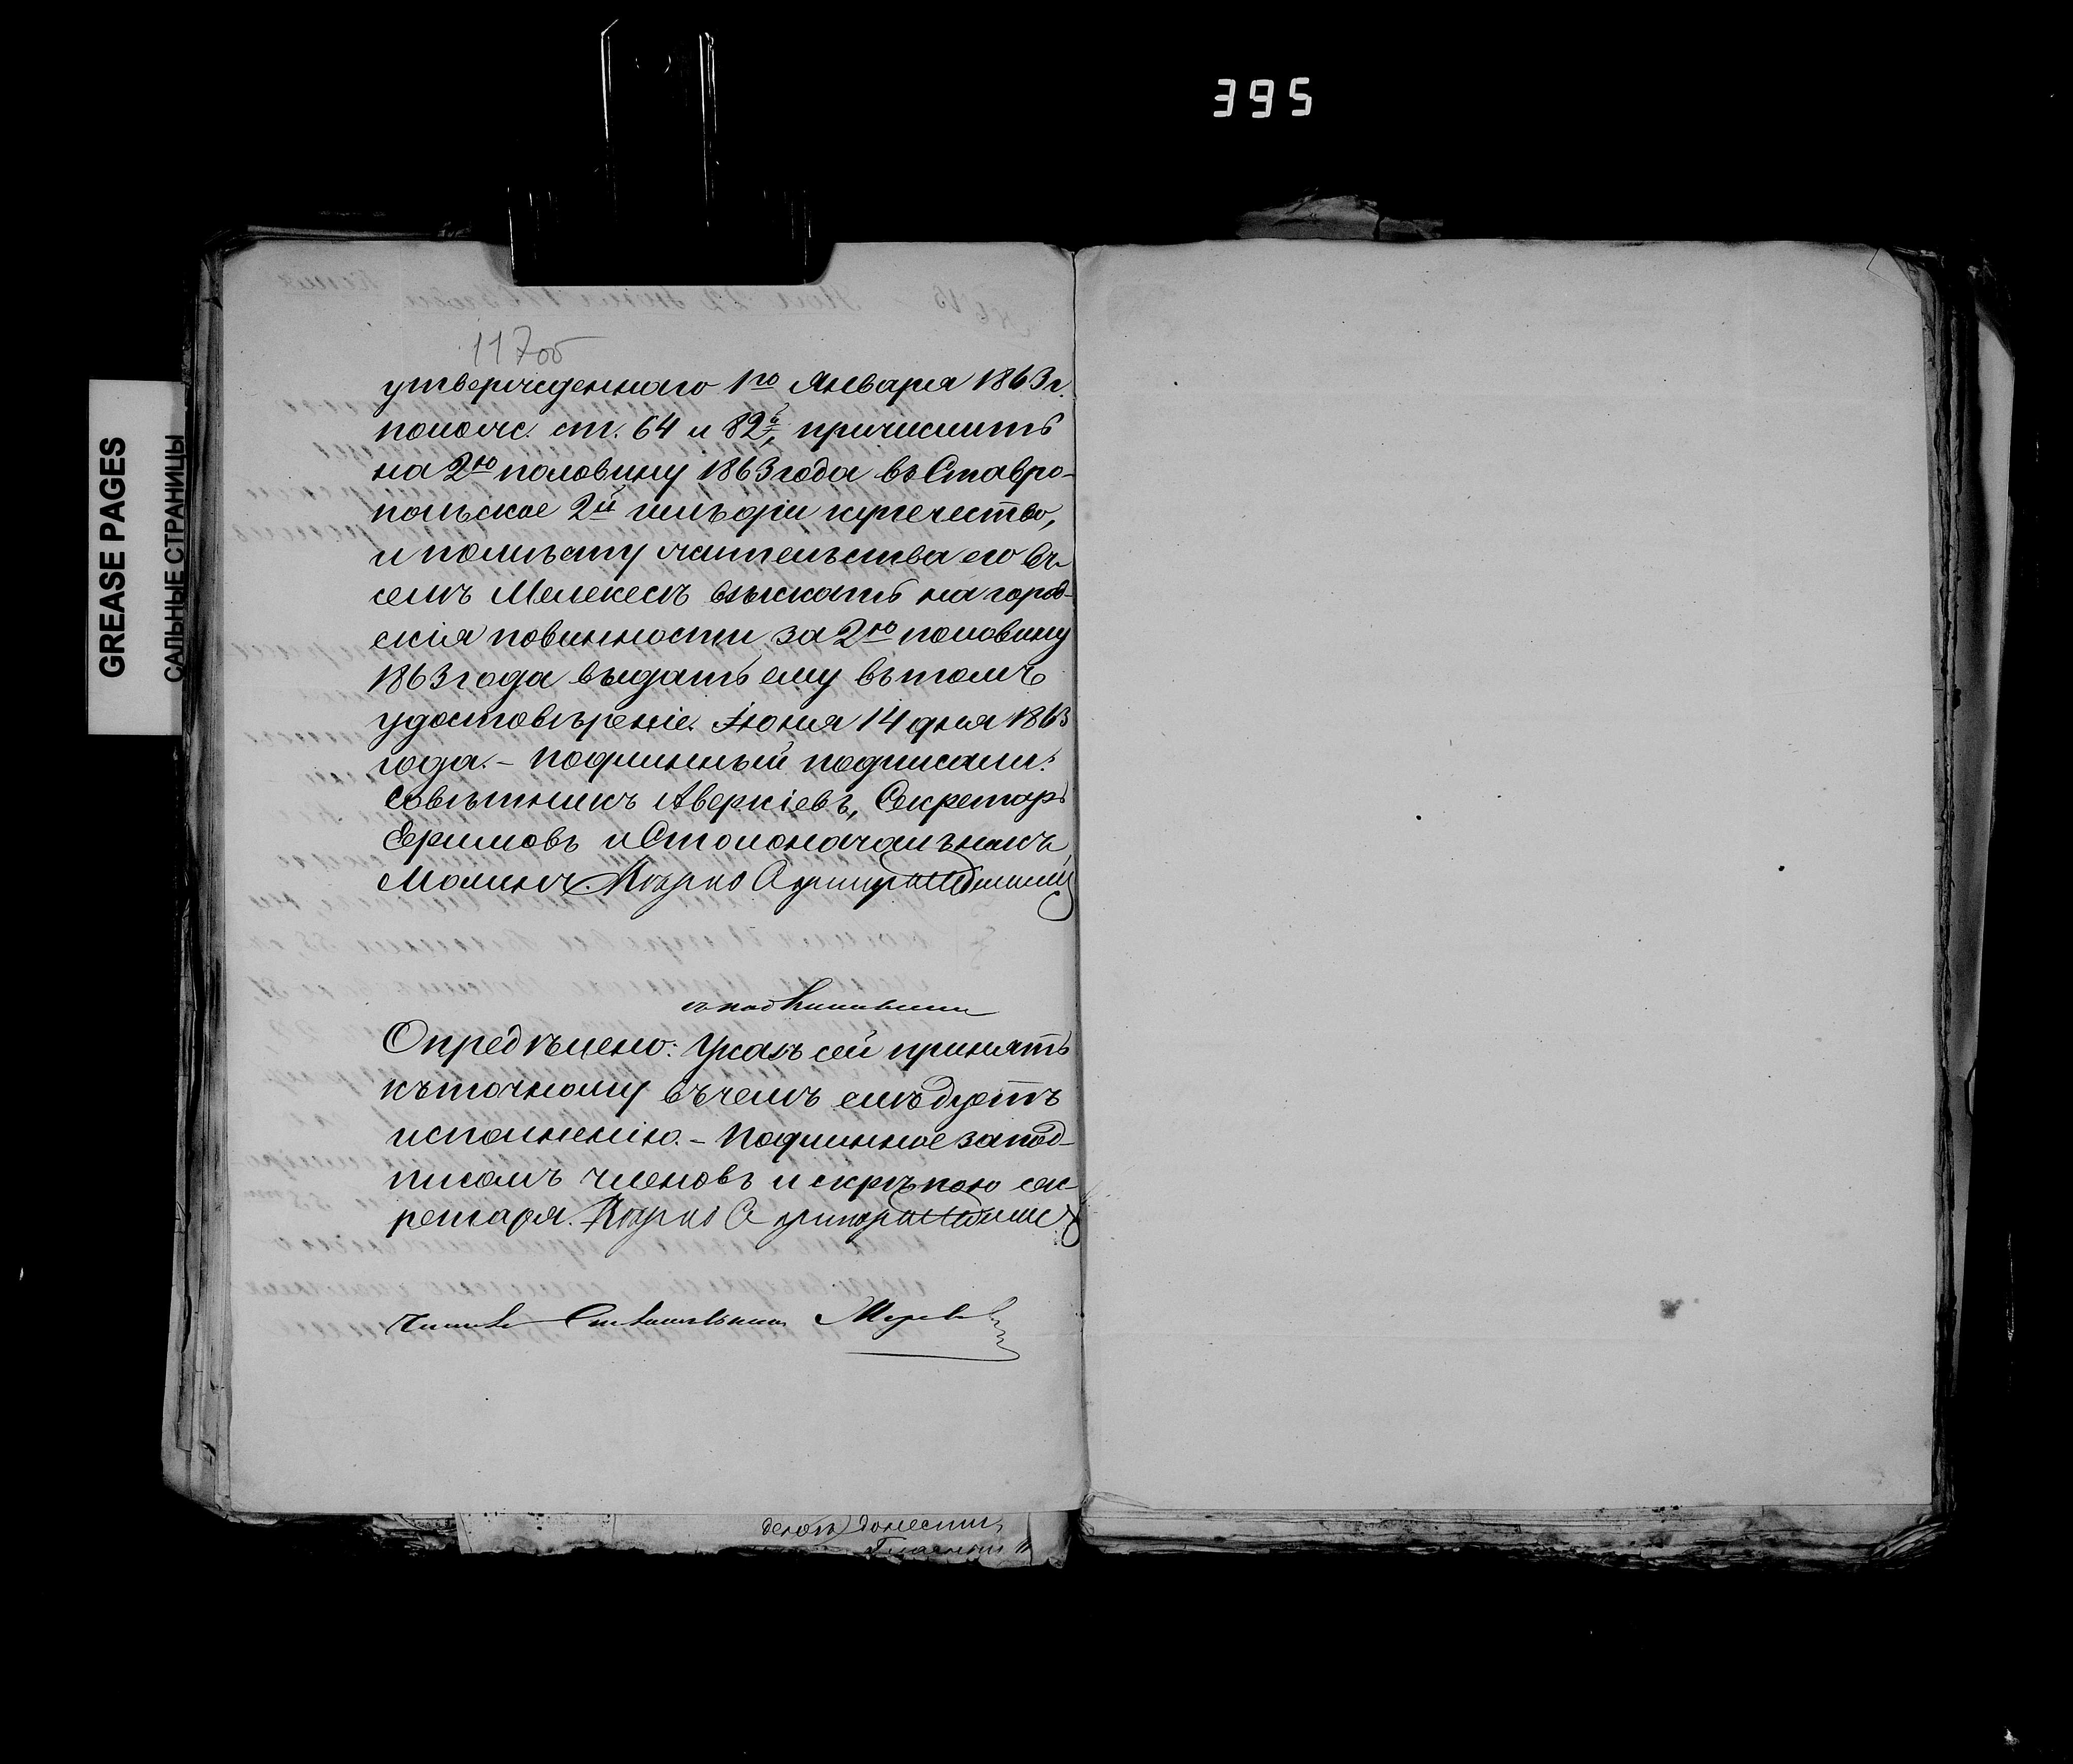 395
GREASE PAGES
САЛЬНЫЕ СТРАНИЦЫ
117об
утвержденнаго 1го Января 1863 г.
полож. ст. 64 и 82й, причислить
на 2ю половину 1863 года въ Ставро-
польское 2й гильдіи купечество,
и по мѣсту жительства его въ
селѣ Мелекесѣ взыскать на город-
скія повинности за 2ю половину
1863 года выдать ему въ томъ
удостовѣреніе. Іюня 14 дня 1863
года. – Подлинный подписали:
Совѣтникъ Аверкіевъ, Секретарь
и Столоначальникъ
Опредѣлено: Указъ сей принять
къ точному въ чемъ слѣдуетъ
исполненію. – Подлинное за под-
писомъ членовъ и скрѣпою сек-
ретаря.
донести,